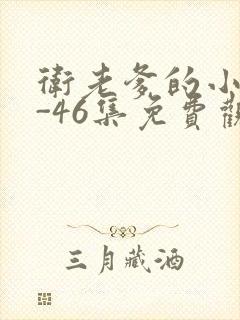 衛老爹的小
-46集免費觀
三月藏酒